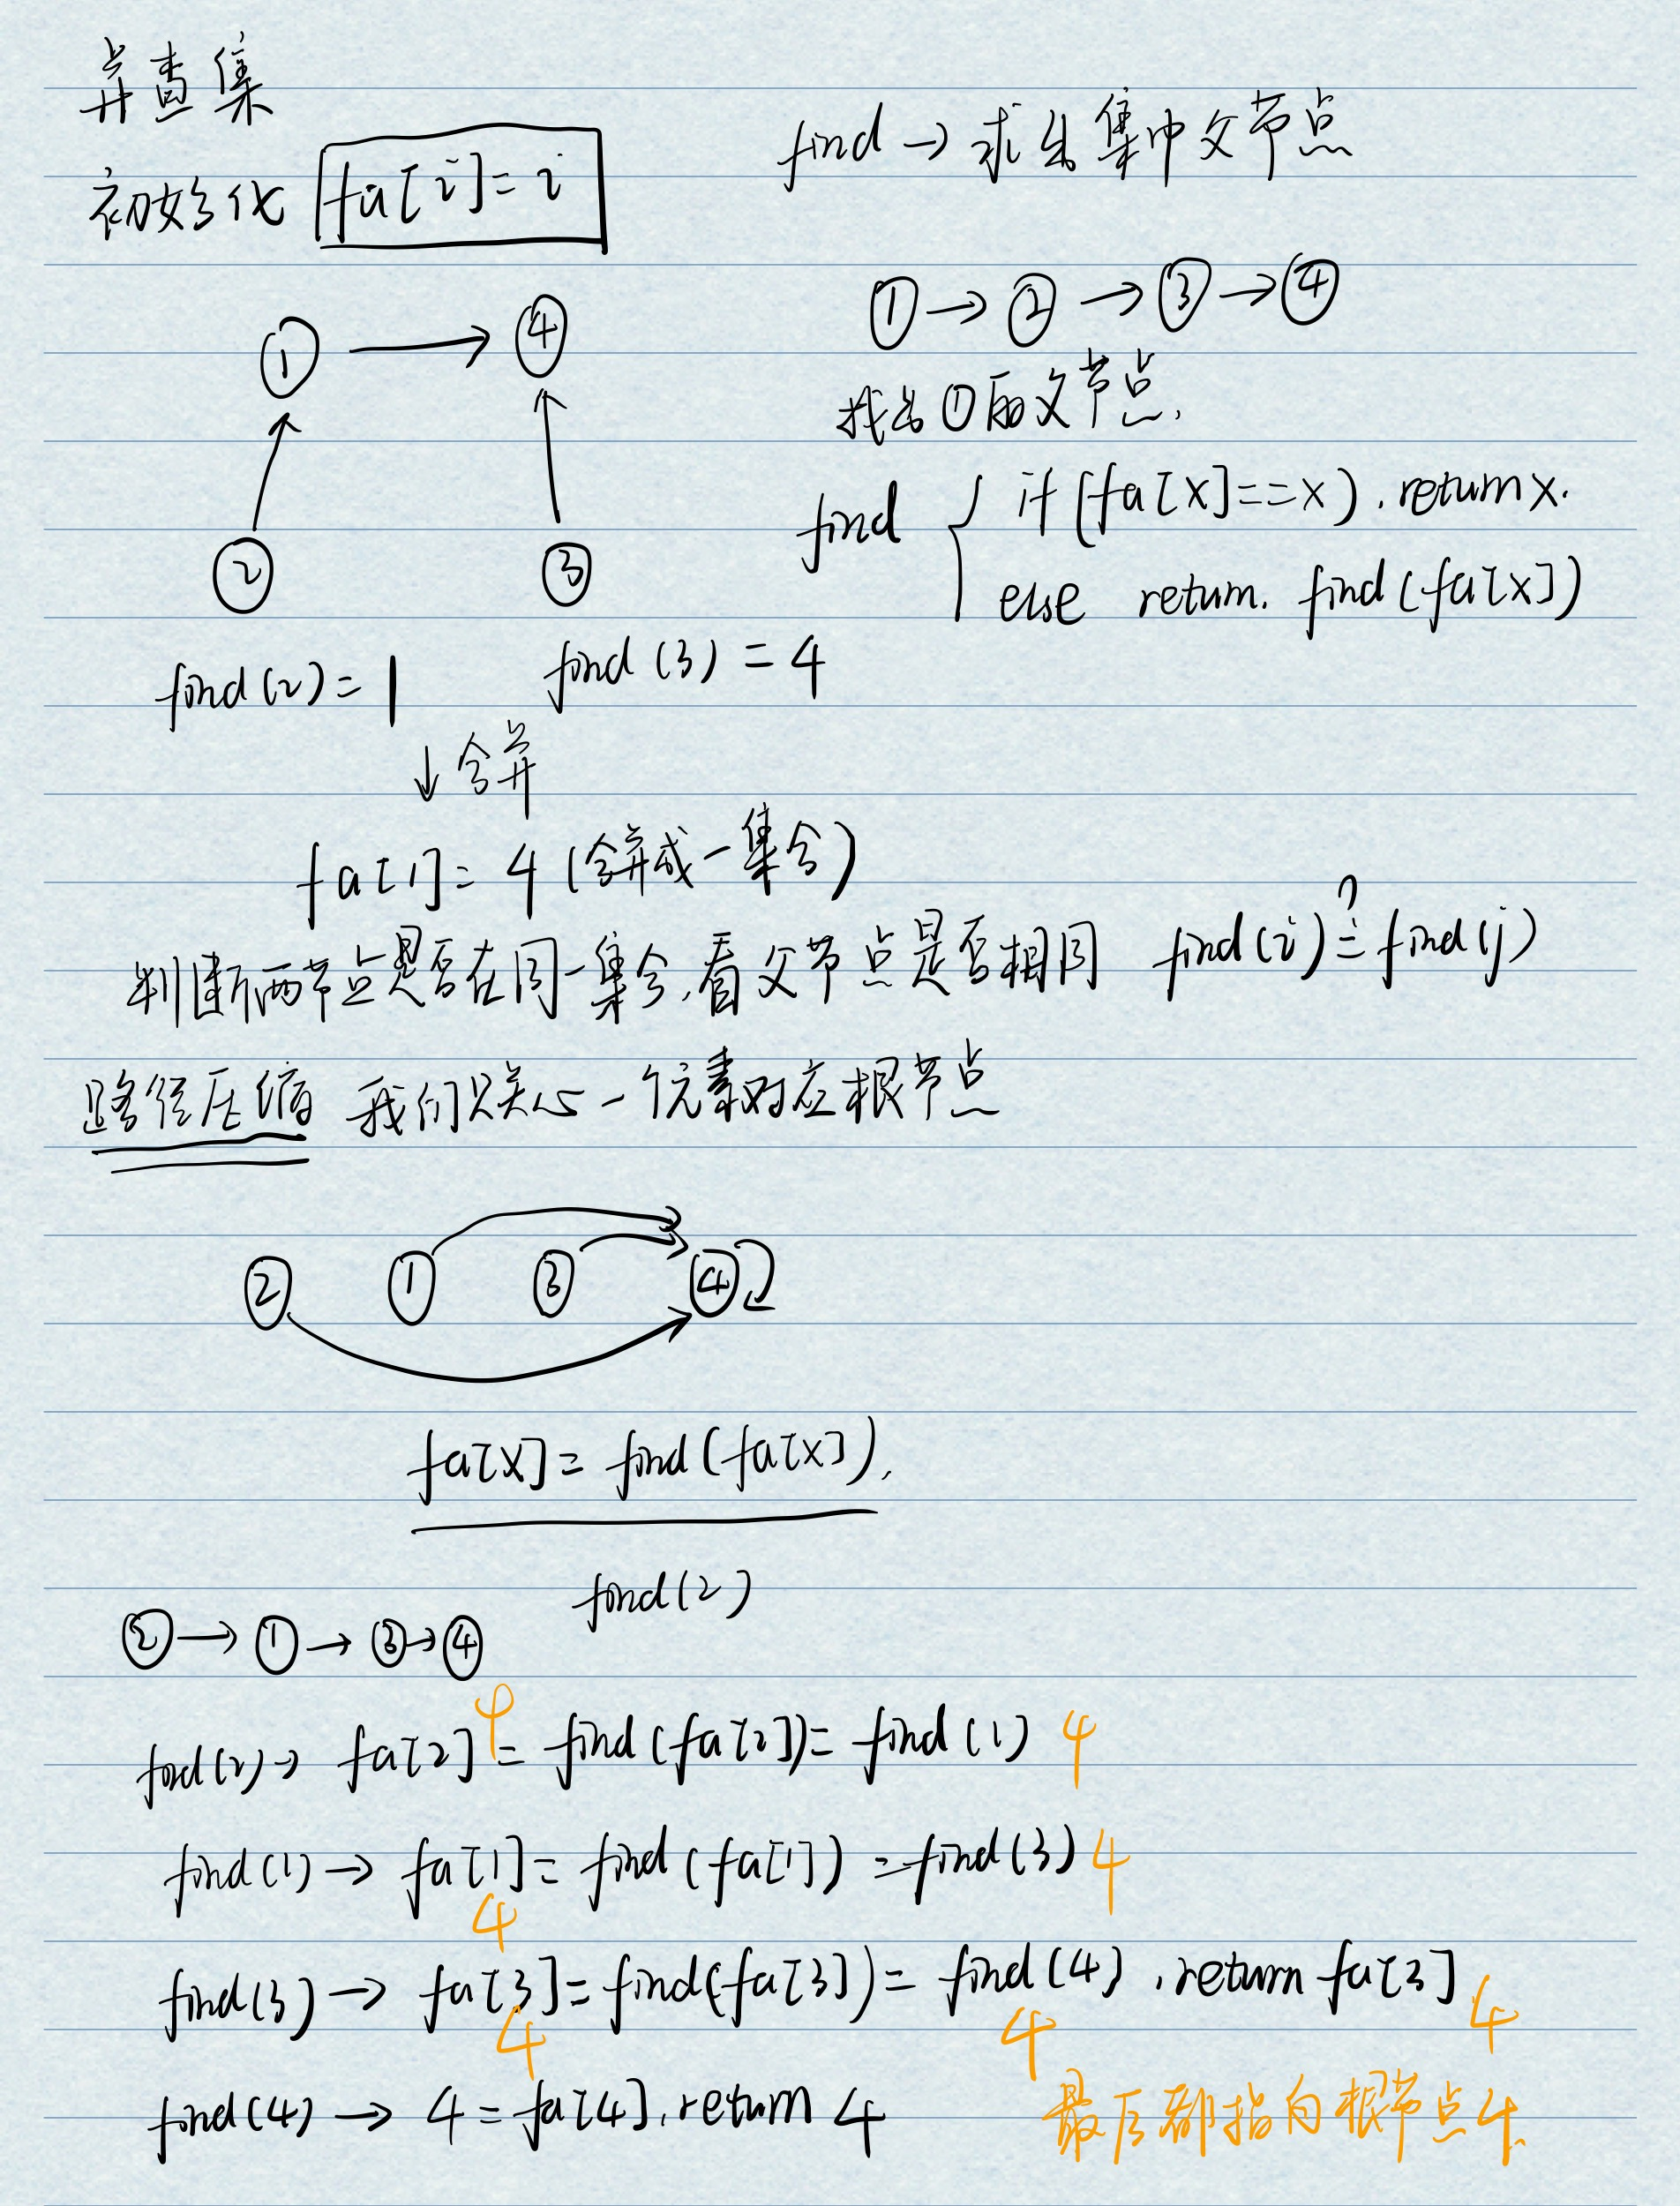 并查集
初始化 fa[i]=i
find → 求出集中父节点
① → ④
② ③
① → ② → ③ → ④
找出①的父节点.
find { if (fa[x]==x). return x.
else return. find(fa[x])
find(2)=1
find(3)=4
↓合并
fa[1]=4 (合并成一集合)
判断两节点是否在同一集合,看父节点是否相同 find(i)=find(j) ?
路径压缩 我们只关心一个元素对应根节点
② ① ③ ④
fa[x]=find(fa[x]),
find(2)
② → ① → ③ → ④
find(2)→ fa[2] 4 = find(fa[2])= find(1) 4
find(1) → fa[1]= find(fa[1]) =find(3) 4
4
find(3) → fa[3]=find(fa[3])= find(4) , return fa[3] 4
4 4
find(4) → 4=fa[4], return 4
最后都指向根节点4.